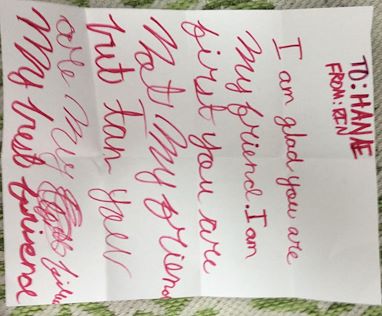 TO: HANAE
FROM: REN
I am glad you are
My friend. I am
first you are
Not My friend
but I am your
are My
My best friend